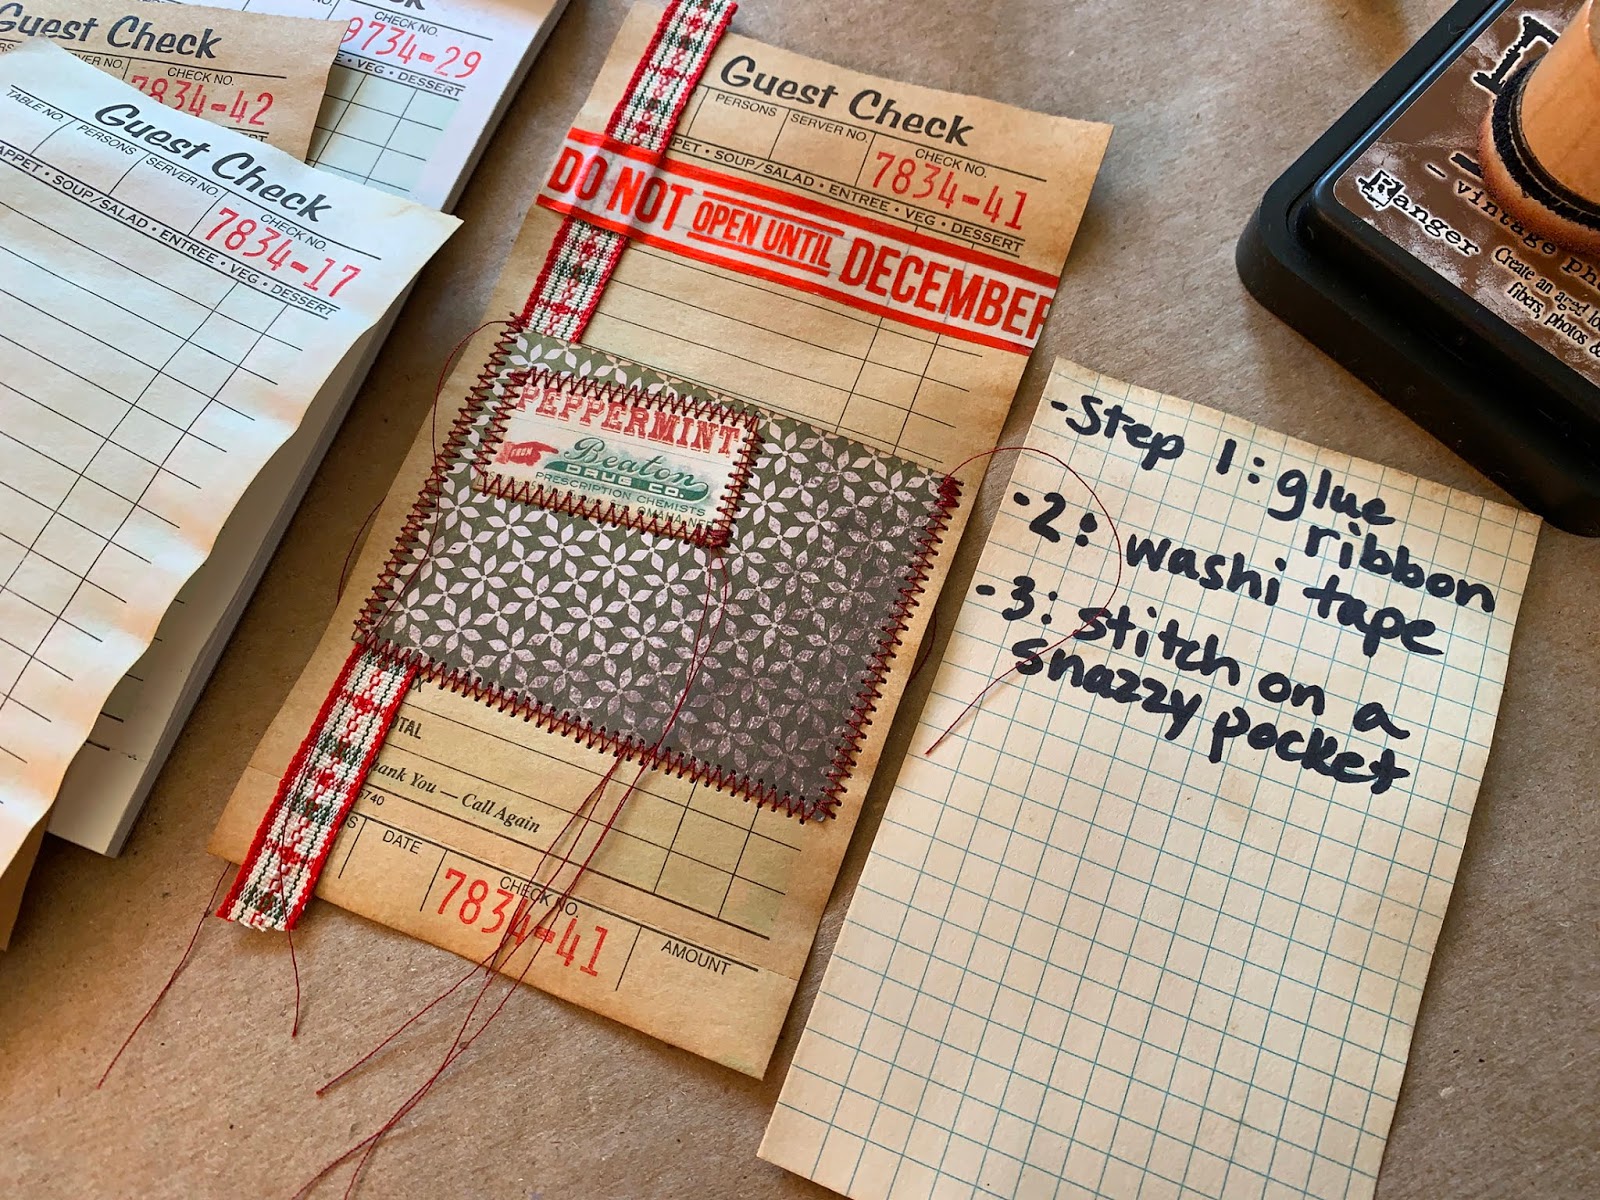 Guest Check
CHECK NO.
7834-42
CHECK NO.
9734-29
VEG • DESSERT
Guest Check
TABLE NO.
PERSONS
SERVER NO.
CHECK NO.
7834-17
APPET • SOUP/SALAD • ENTREE • VEG • DESSERT
Guest Check
PERSONS
SERVER NO.
CHECK NO.
7834-41
PET • SOUP/SALAD • ENTREE • VEG • DESSERT
DO NOT OPEN UNTIL DECEMBER
PEPPERMINT
FROM
Beaton
DRUG CO.
PRESCRIPTION CHEMISTS
OMAHA NEB
TAX
TOTAL
Thank You — Call Again
DATE
CHECK NO.
7834-41
AMOUNT
-Step 1: glue
ribbon
-2: washi tape
-3: stitch on a
snazzy pocket
Ranger
- vintage pho
Create an aged lo
fibers, photos &